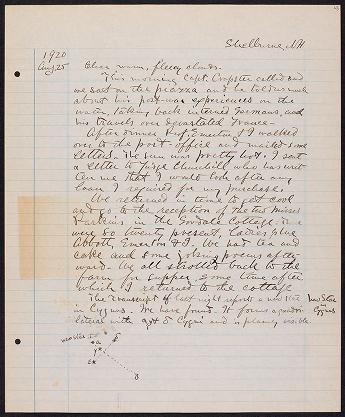 Shelburne, NH
1920
Aug 25
Clear, warm, fleecy clouds.
This morning Capt. Cropster called and
we sat on the piazza and he told us much
about his post-war experiences on the
water, taking back interned Germans, and
his travels over devastated France.
After dinner Prof. Emerton & I walked
over to the post-office and mailed some
letters. The sun was pretty hot. I sent
a letter to Judge Churchill who has writ-
ten me that I would look after any
loan I required for my purchase.
We returned in time to get cool
and go to the reception of the two Misses
Parkins in the Cottage. There
were 20 twenty present, Ladies plus
Abbott, Emerton & I. We had tea and
cake and some jolly poems after-
ward. We all strolled back to the
farm for supper some time after
which I returned to the cottage
The Transcript of last night reports a new star
in Cygnus. We have found it. It forms a quadri-
lateral with α γ & δ Cygni and is plainly visible
New Star
in
Cygnus
new star
α
γ
δ
ε
β